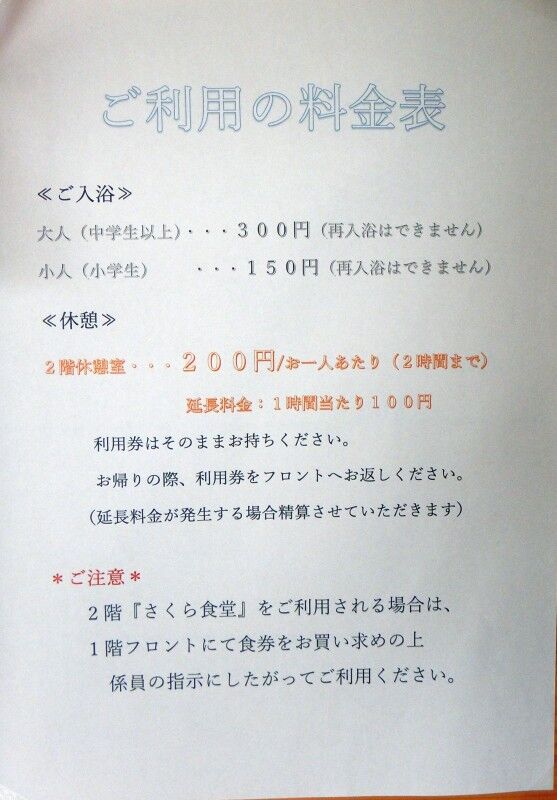 ご利用の料金表
≪ご入浴≫
大人（中学生以上）・・・３００円（再入浴はできません）
小人（小学生）　　・・・１５０円（再入浴はできません）
≪休憩≫
２階休憩室・・・２００円/お一人あたり（２時間まで）
延長料金：１時間当たり１００円
利用券はそのままお持ちください。
お帰りの際、利用券をフロントへお返しください。
（延長料金が発生する場合精算させていただきます）
＊ご注意＊
２階『さくら食堂』をご利用される場合は、
１階フロントにて食券をお買い求めの上
係員の指示にしたがってご利用ください。